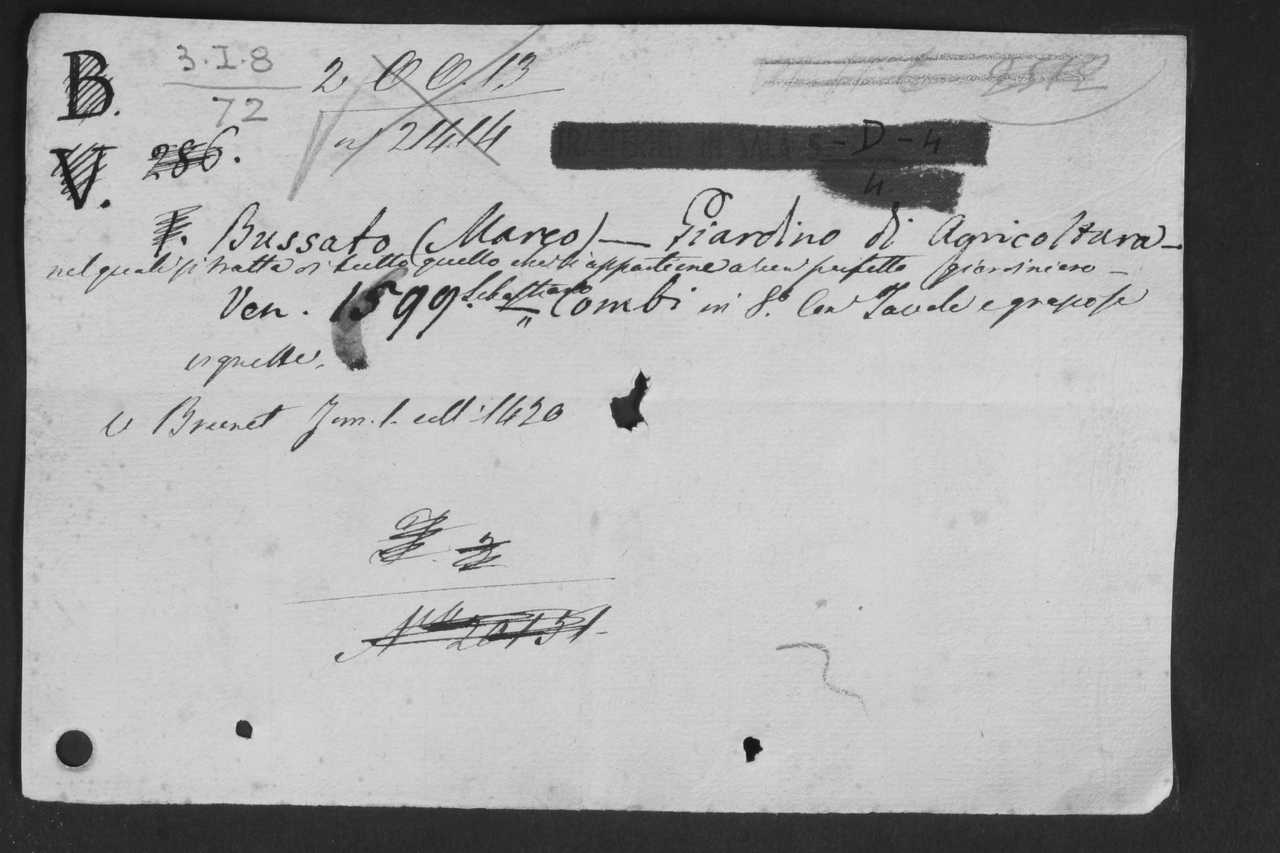 B. 3.I.8
72
2 O O. 13
n 2414
TRASFERITI IN SALA 5-D-4
4
V. 286.
F. Bussato (Marco) — Giardino di Agricoltura —
nel quale si tratta di tutto quello che si appartiene a un perfetto giardiniero —
Ven. 1599. Sebastiano Combi in 8.º Con Tavole e graziose
vignette.
V Brunet Tom. 1. coll: 1420